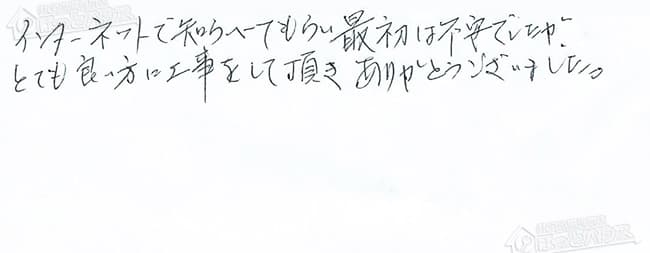 インターネットで知らべてもらい最初は不安でしたが、
とても良い方に工事をして頂きありがとうございました。